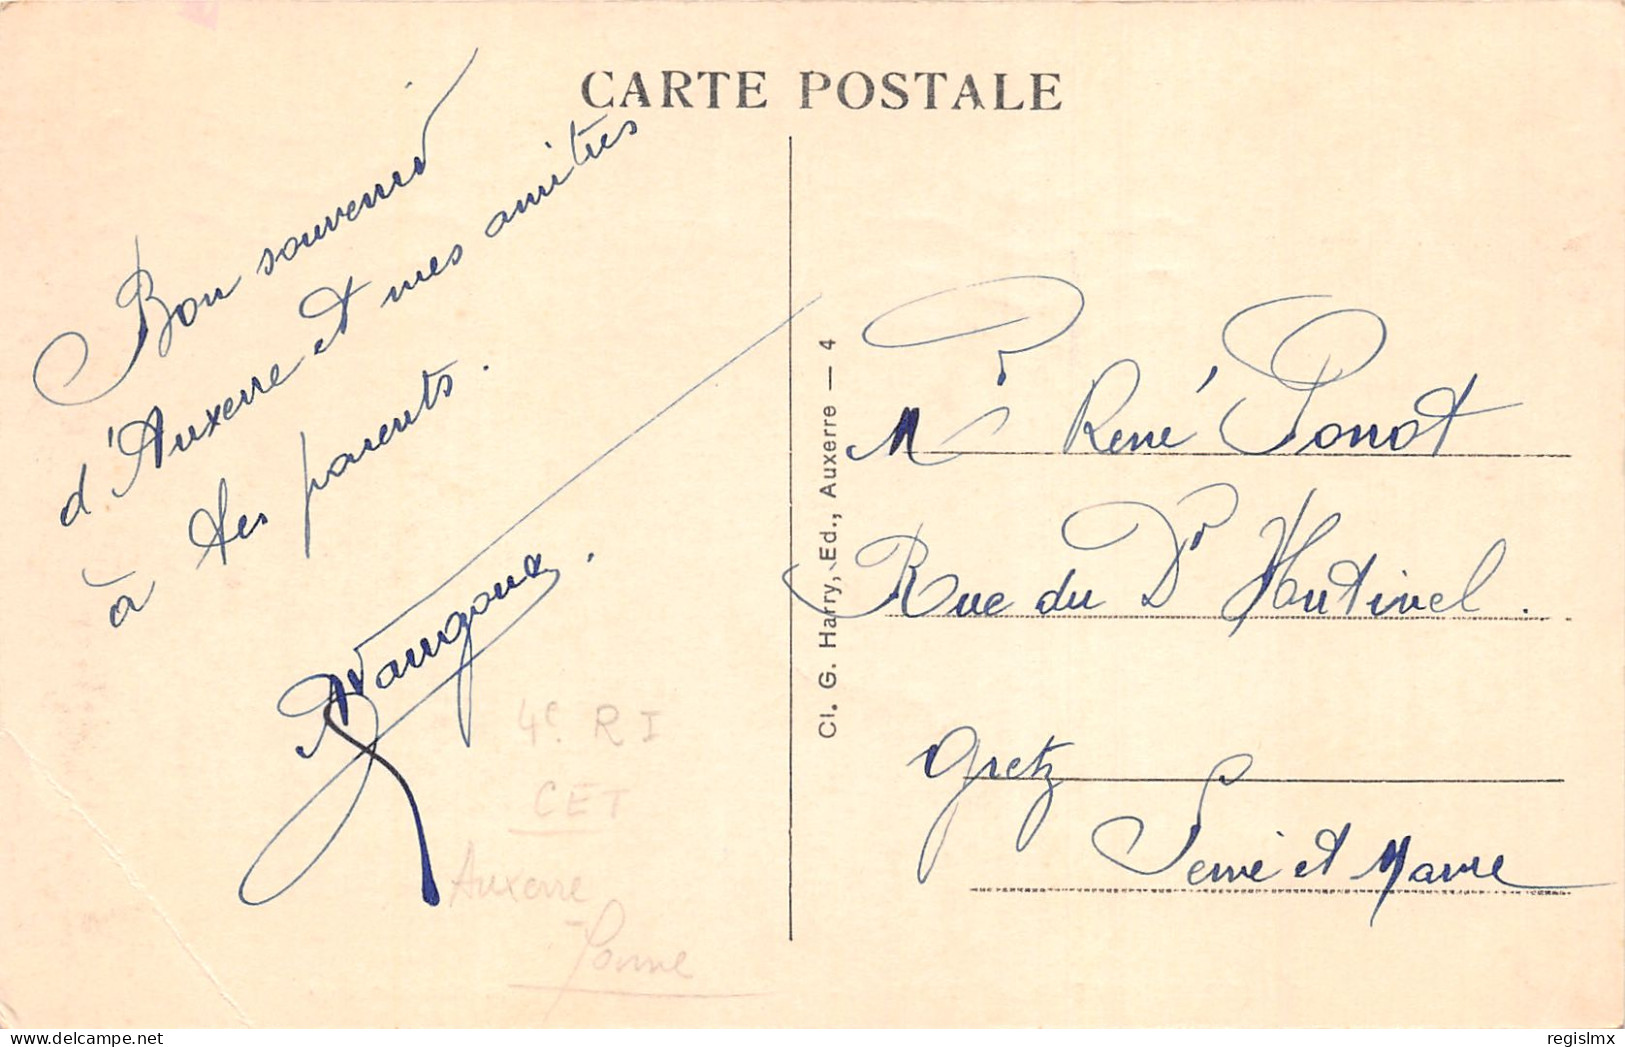 CARTE POSTALE
Bon souvenir
d'Auxerre et mes amitiés
à tes parents.
4e R I
CET
Auxerre
Yonne
Cl. G. Harry, Ed., Auxerre — 4
Mr René Ponot
Rue du Dr Hutinel.
Gretz
Seine et Marne
regislmx